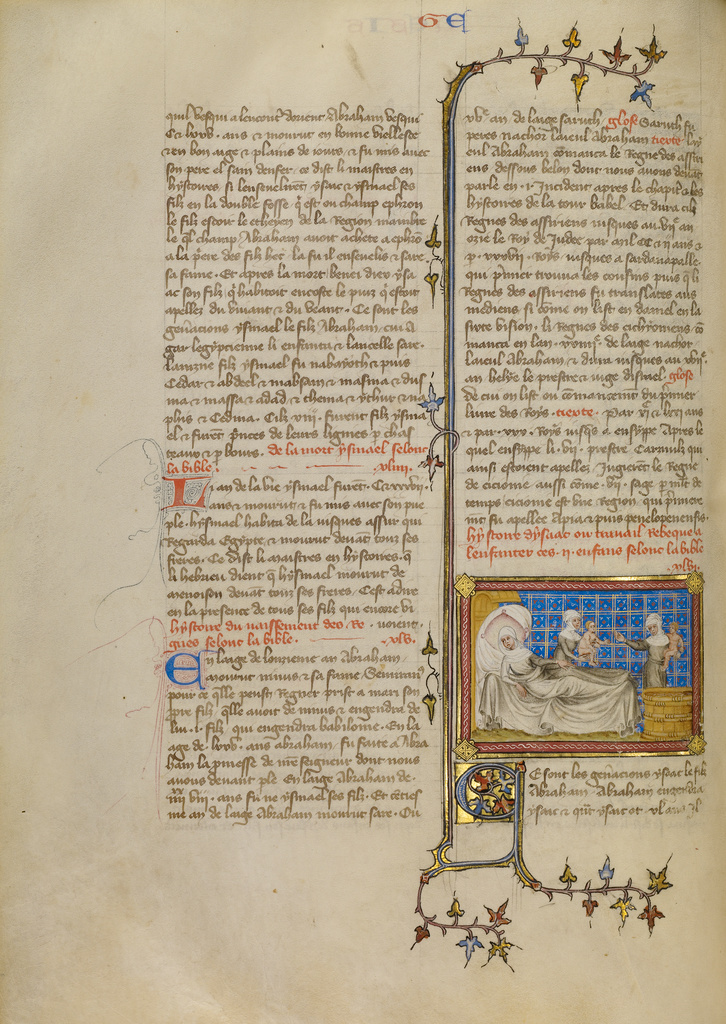 GE
quil vesqui a lencont' dovent Abraham vesqui
C & lxxv · ans & mourut en bonne viellesce
& en bon aige & plains de iours · & fu mis avec
son pere el sain denfer · ce dist li maistres en
hystoires · si lensevelirent ysaac & ysmael ses
filz en la double fosse · q' est ou champ ephron
le filz estoir le etheyen de la Region mambre
le ql champ Abraham avoit achete a ephro
a la pere des filz het · la fu il ensevelis & sare
sa fame · Et apres la mort benei dieu ysa
ac son filz · q' habitoit encoste le puiz q' estoit
apellez du vivant & du veant · Ce sont les
gnacions ysmael le filz Abraham · cui A
gar legypcienne li enfanta & lancelle sare ·
Lainzne filz ysmael fu nabayoth & puis
Cedar & abdeel & mabsam & masma & du
ma & massa & adad & thema & ythur & na
phis & Cedma · Cilz furent filz ysma
el & furet p'nces de leurs lignies p chas
teaux & p bours · de la mort ysmael selonc
la bible · xliiii ·
Li an de la vie ysmael furet · C & xxxvii ·
ans & mourut & fu mis avec son pue
ple · hysmael habita de la iusques assur qui
Regarda Egypte & mourut devat touz ses
freres · Ce dist li maistres en hystoires · q
li hebrieu dient q' hysmael mourut de
menoison devat touz ses freres · Cest adire
en la presence de tous ses filz qui encore vi
hystoire du naissement des Re voient ·
gnes selonc la bible · xlv ·
En laige de an Abraham ·
mourut ninus & sa fame Semirami
pour ce qlle peust Regner prist a mari son
ppre filz qlle avoit de ninus & engendra de
lui · i · filz qui engendra babiloine · En la
age de lxxv · ans abraham · fu faite a Abra
ham la pmesse de nre seigneur dont nous
avons devant ple · En laige Abraham de ·
iiii vi · ans fu ne ysmael ses filz · Et
me an de laige Abraham mourut sare · Ou
an de laige saruch glose Saruch fu
peres nachor laieul Abraham texte
eul Abraham comanca le Regne des assiri
ens dessous belon dont nous avons devat
parle en · i · Incident apres le chapit' & les
hystoires de la tour babel · Et dura cilz
Regnes des assiriens iusques au vii an
ozie le Roy de Iudee par mil CC & ii ans &
p · xxxvii · Roys iusques a sardanapalle
qui p'mier trouva les coussins puis q li
Regnes des assiriens fu translates aus
mediens · si come on list en daniel en la
siste vision · li Regnes des
manca en lan · de laige nachor
laieul Abraham · & dura iusques au xviii
an helye le prestre & iuge disrael · glose
De cui on list ou comancemt du p'mier
livre des Roys · texte · Par & lxxi ans
& par · xxv · Roys iusqs a Apres le
quel · li · vii · prestre Carmilz qui
ainsi estoient apellez Iugierent le Regne
de cicione aussi come · vii · sage p mlt de
temps · cicione est une Region qui p'miere
mt fu apellee Apia & puis penelopenensis ·
hystoire dysaac ou travail Rebeque a
lenfanter ces · ii · enfans selonc la bible
xlvi ·
Ce sont les gnacions ysaac le filz
Abraham · Abraham engendra
ysaac & qnt ysaac ot · xl ans il